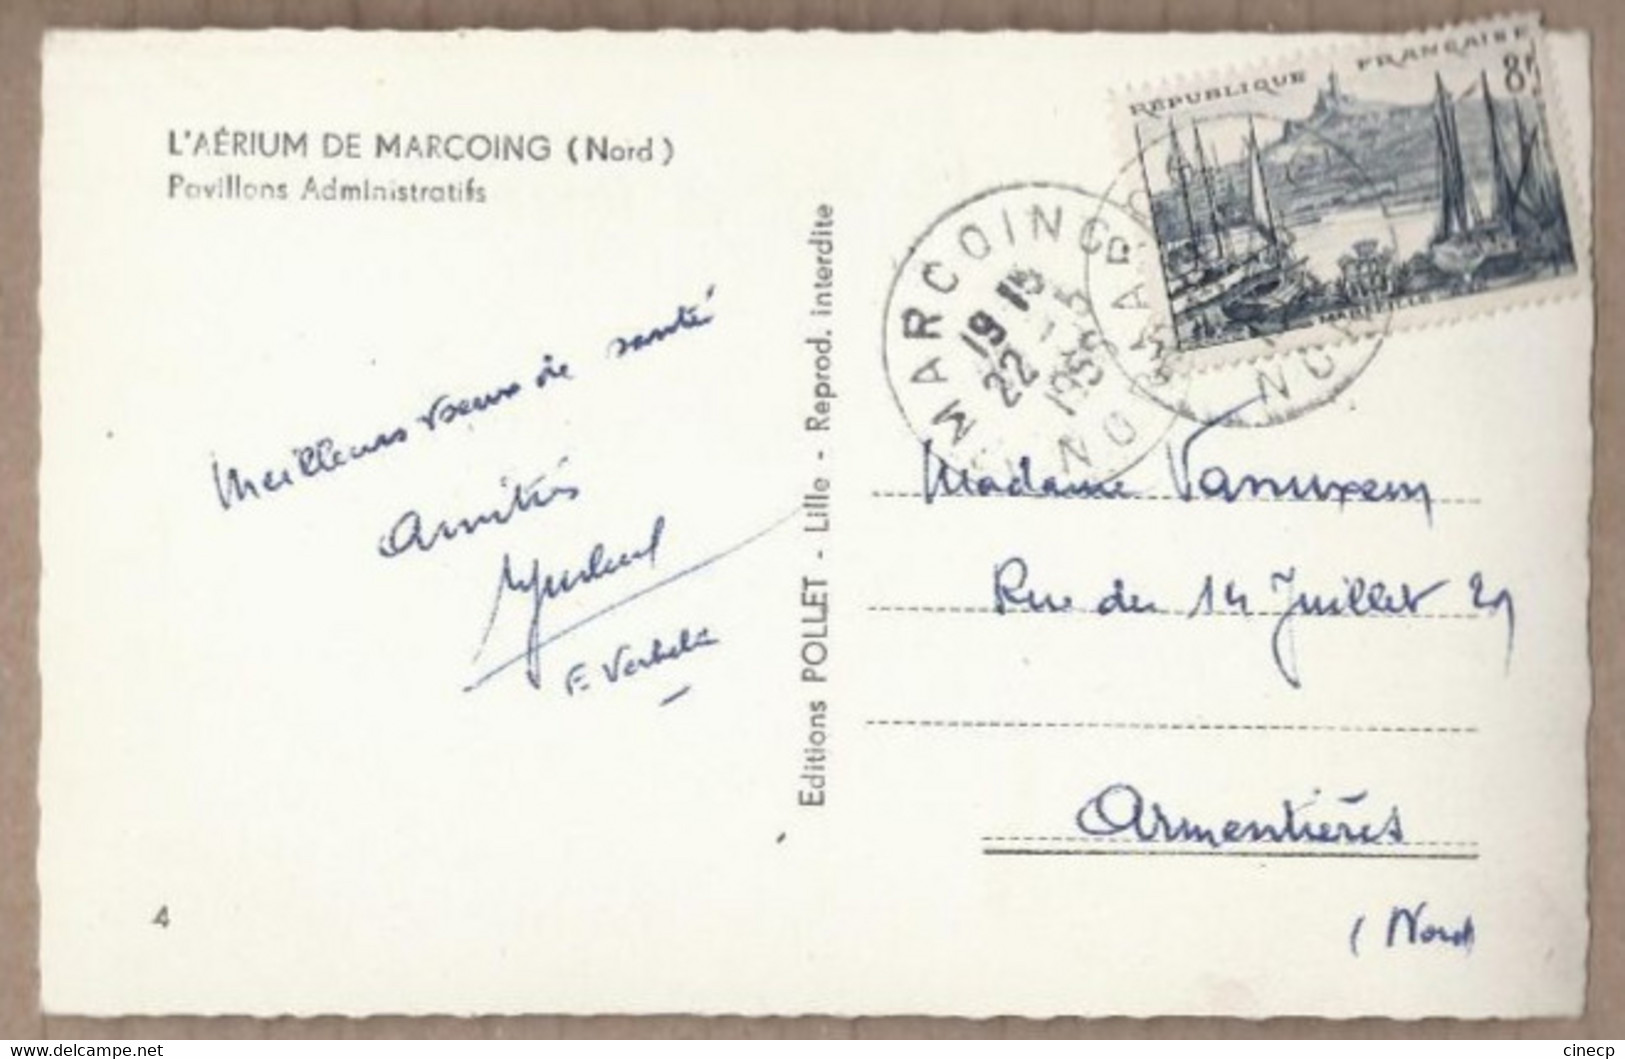 L'AÉRIUM DE MARCOING (Nord)
Pavillons Administratifs
Meilleurs vœux de santé
Amitiés
F. Verbeke
4
Editions POLLET - Lille - Reprod. interdite
RÉPUBLIQUE FRANÇAISE
8f
MARSEILLE
MARCOING
19 15
22
1955
NORD
Madame Vanuxem
Rue du 14 Juillet 29
Armentières
(Nord
www.delcampe.net
cinecp